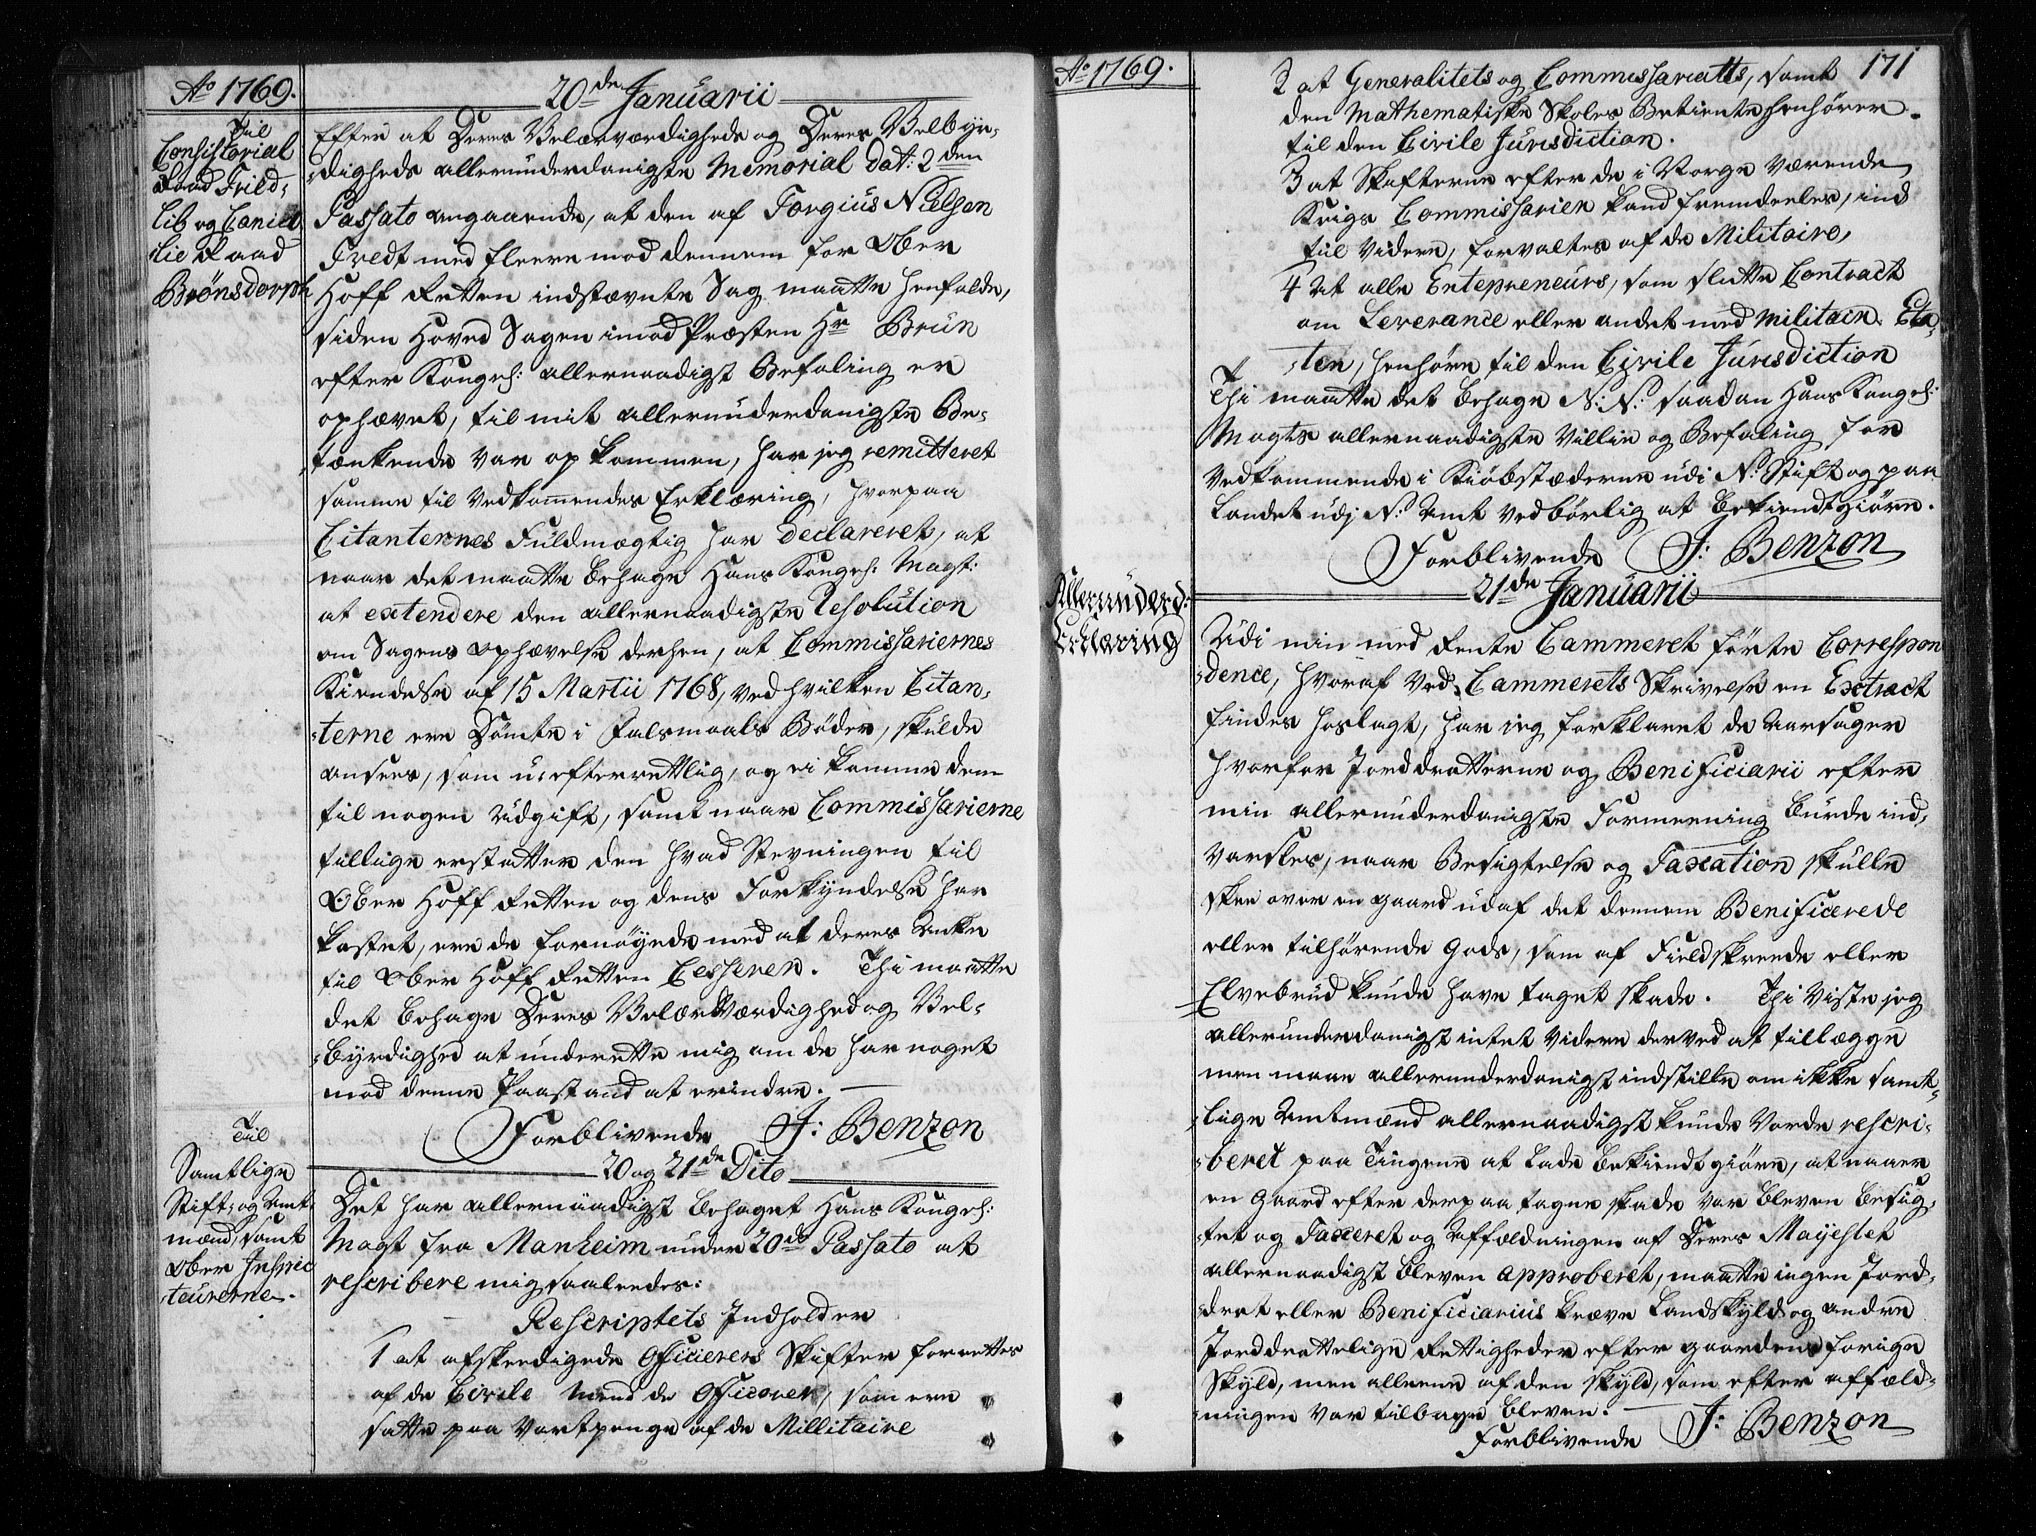 Ao 1769.
20de Januarii
Til
Consistorial
Raad Frid-
lib og Cancel-
lie Raad
Brönsdorph
Efter at Deres Velærværdigheds og Deres Velbyr-
digheds allerunderdanigste Memorial dat: 2den
Passato angaaende, at den af Torgius Nielsen
Tredt med fleere mod dennem for Ober
Hoff Retten indstævnte Sag maatte henfalde,
siden Hoved Sagen imod Præsten Hr Brun
efter Kongel: allernaadigst Befaling er
ophævet, til mit allerunderdanigste Be-
tænkende var op kommen, har jeg remitteret
samme til Vedkommendes Erklæring, hvorpaa
Citanternes Fuldmægtig har declareret, at
naar det maatte behage Hans Kongel: Mayst:
at extendere den allernaadigste Resolution
om Sagens ophævelse derhen, at Commissariernes
Kiendelse af 15 Martii 1768, ved hvilken Citan-
terne ere Dömte i Falsmaals Böder, skulde
ansees, som u-efterrettlig, og ei komme dem
til nogen Udgift, samt naar Commissarierne
tillige erstatter den hvad Stevningen til
Ober Hoff Retten og dens Forkyndelse har
kostet, ere de fornöyede med at deres Anke
til Ober Hoff Retten Cesserer. Thi maatte
det behage Deres Velær Værdighed og Vel-
byrdighed at underrette mig om de har noget
mod denne Paastand at erindre.
Forblivende J: Benzon
20 og 21de Dito
Til
Samtlige
Stift- og Amt-
mænd, samt
Ober Inspec-
teurerne.
Det har allernaadigst behaget Hans Kongel:
Mayst fra Manheim under 20de Passato at
rescribere mig saaledes:
Rescriptets Indhold er
1 at afskeedigede Officierers Skifter forrettes
af de Civile mend de Officerer, som ere
satte paa Vartpenge af de Millitaire
Ao 1769.
171
2 at Generalitets og Commissariatts, samt
den Mathematiske Skoles Betiente henhörer
til den Civile Jurisdiction.
3 at Skifterne efter de i Norge værende
Krigs Commissarier kand fremdeeles, ind
til Videre, forvaltes af de Militaire,
4 At alle Entepreneurs, som slutte Contract
om Leverance eller andet med Militair Eta-
ten, henhöre til den Civile Jurisdiction
Thi maatte det behage N: N: saadan Hans Kongel:
Mayts allernaadigste Villie og Befaling for
Vedkommende i Kiöbstæderne udi N: Stift og paa
Landet udj N: Amt vedbörlig at bekiendtgiöre.
Forblivende J: Benzon
21de Januarii
Allerunderd:
Erklæring
Udi min med Rente Cammeret förte Correspon
dence, hvoraf ved Cammerets Skrivelse en Extract
findes hoslagt, har jeg forklaret de Aarsager
hvorfor Jorddrotterne og Benificiarii efter
min allerunderdanigste Formeening burde ind-
varsles, naar Besigtelse og Taxation skulle
skee over en gaard udaf det dennem Benificerede
eller tilhörende Gods, som af Fieldskreede eller
Elvebrud kunde have taget skade. Thi viste jeg
allerunderdanigst intet videre derved at tillægge
men maae allerunderdanigst indstille om ikke samt-
lige Amtmænd allernaadigst kunde vorde rescri-
beret paa Tingene at lade bekiendtgiöre, at naar
en Gaard efter derpaa tagne skade var bleven besig-
tet og Taxeret og Affældningen af Deres Mayestet
allernaadigst bleven approberet, maatte ingen Jord-
drot eller Benificiarius kræve Landskyld og andre
Jorddrottelige Rettigheder efter gaardens forrige
Skyld, men alleene af den skyld, som efter affæld-
ningen var tilbage bleven.
Forblivende J: Benzon